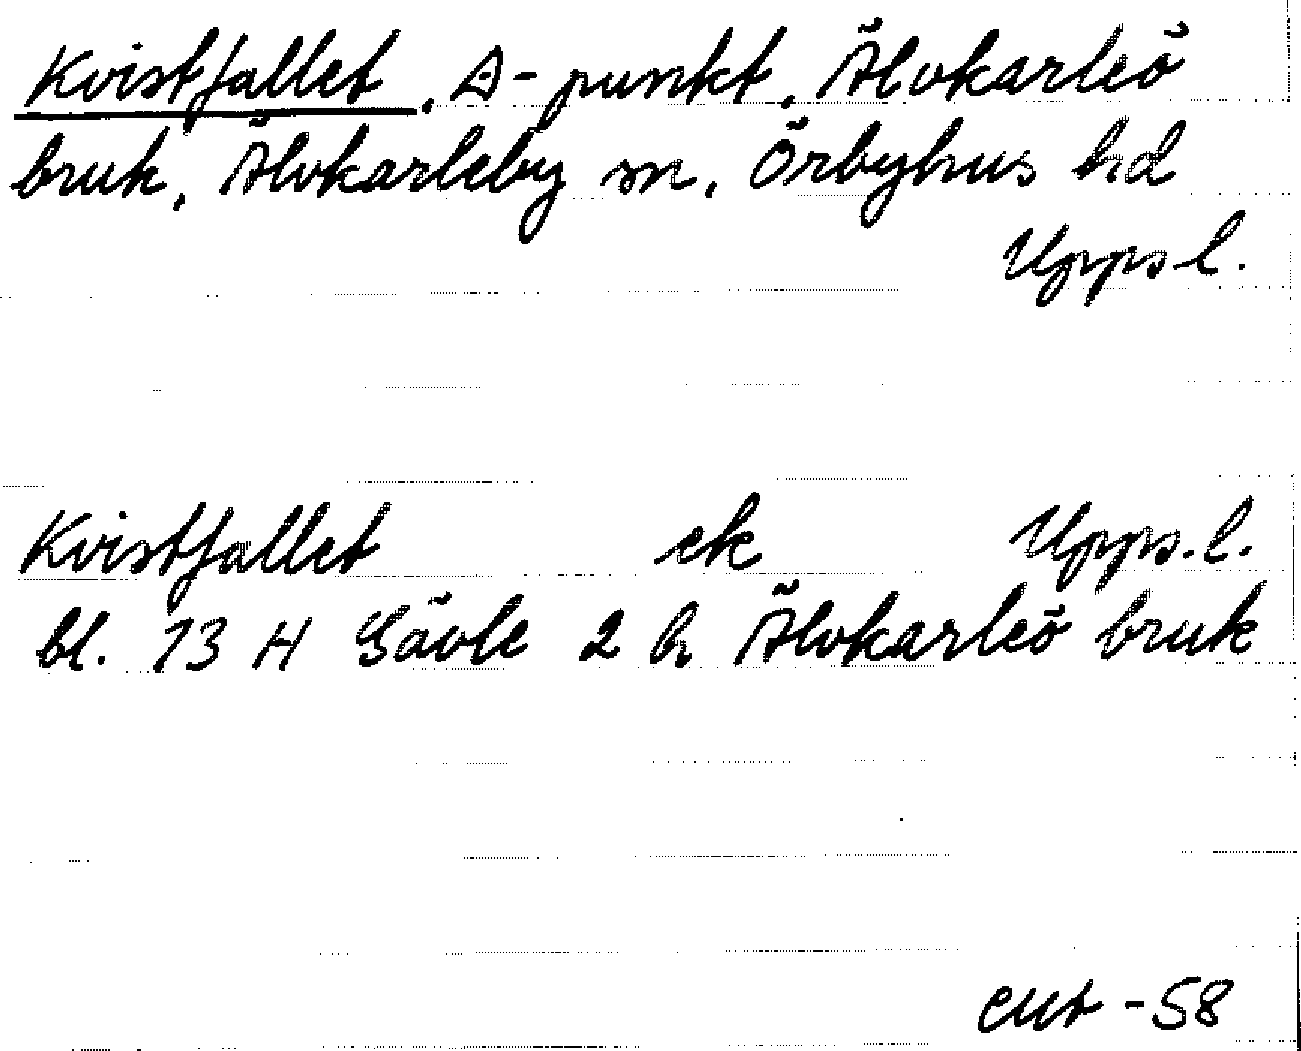 Kvistfallet, A-punkt, Älvkarleö
bruk, Älvkarleby sn, Örbyhus hd
Upps.l.
Kvistfallet ek Upps.l.
bl. 13 H Gävle 2 h Älvkarleö bruk
-58